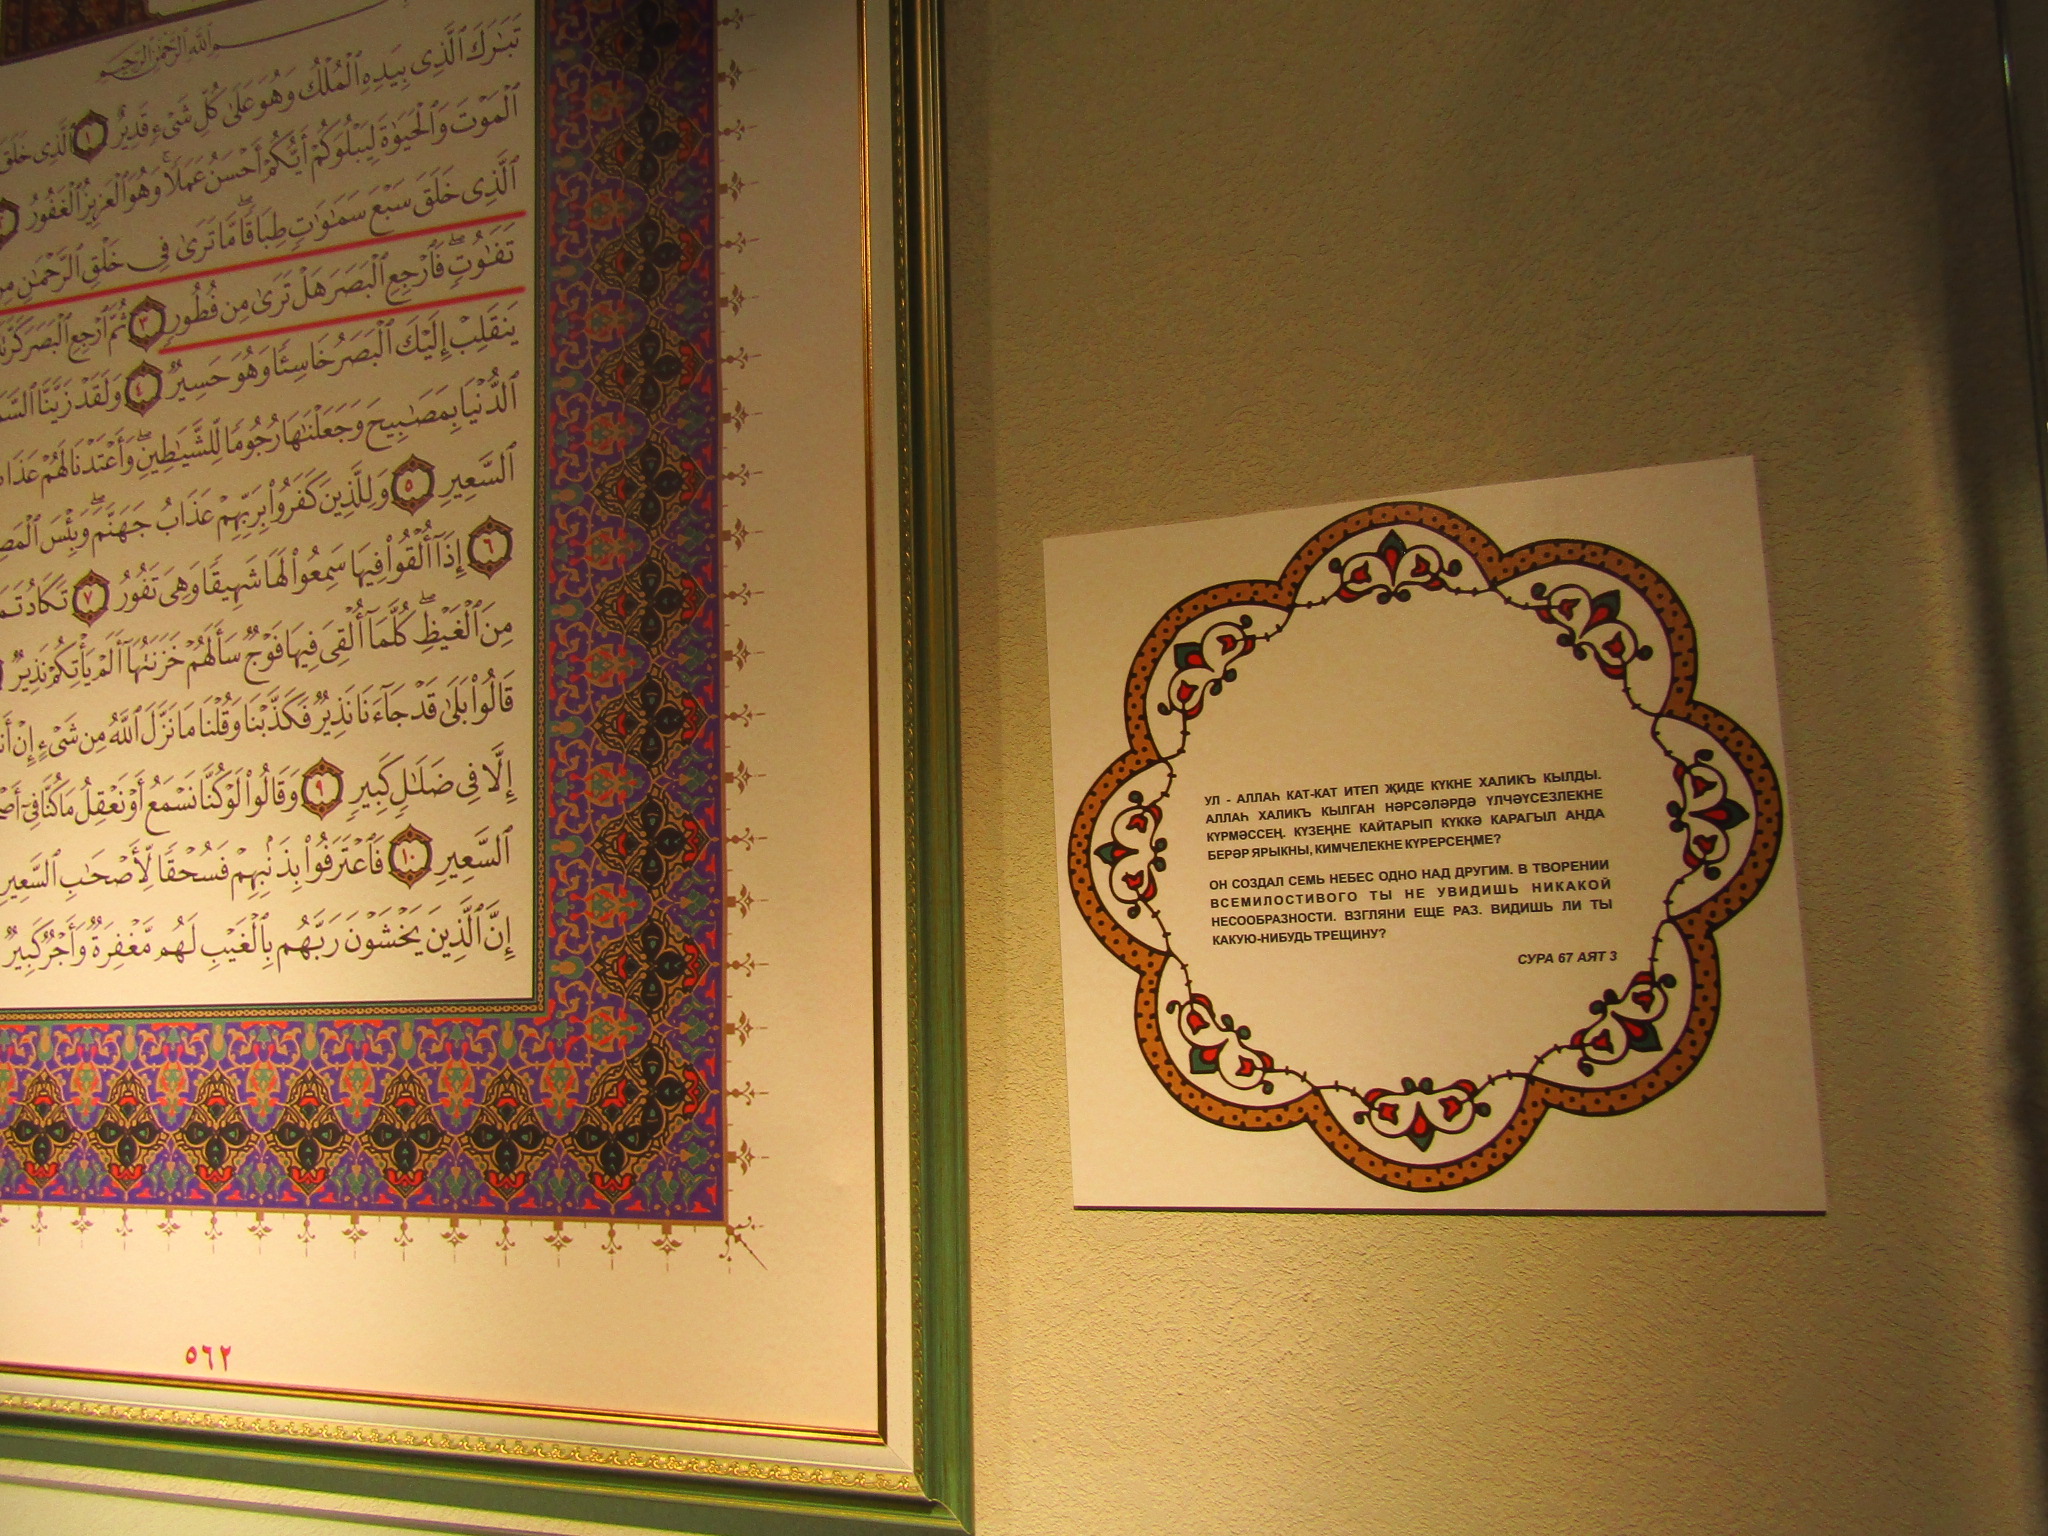 ٱللَّهِ ٱلرَّحْمَٰنِ ٱلرَّحِيمِ
تَبَٰرَكَ ٱلَّذِى بِيَدِهِ ٱلْمُلْكُ وَهُوَ عَلَىٰ كُلِّ شَىْءٍ قَدِيرٌ ١ ٱلَّذِى خَلَقَ
ٱلْمَوْتَ وَٱلْحَيَوٰةَ لِيَبْلُوَكُمْ أَيُّكُمْ أَحْسَنُ عَمَلًا ۚ وَهُوَ ٱلْعَزِيزُ ٱلْغَفُورُ
ٱلَّذِى خَلَقَ سَبْعَ سَمَٰوَٰتٍ طِبَاقًا ۖ مَّا تَرَىٰ فِى خَلْقِ ٱلرَّحْمَٰنِ مِن
تَفَٰوُتٍ ۖ فَٱرْجِعِ ٱلْبَصَرَ هَلْ تَرَىٰ مِن فُطُورٍ ٣ ثُمَّ ٱرْجِعِ ٱلْبَصَرَ
يَنقَلِبْ إِلَيْكَ ٱلْبَصَرُ خَاسِئًا وَهُوَ حَسِيرٌ ٤ وَلَقَدْ زَيَّنَّا
ٱلدُّنْيَا بِمَصَٰبِيحَ وَجَعَلْنَٰهَا رُجُومًا لِّلشَّيَٰطِينِ ۖ وَأَعْتَدْنَا لَهُمْ
ٱلسَّعِيرِ ٥ وَلِلَّذِينَ كَفَرُوا۟ بِرَبِّهِمْ عَذَابُ جَهَنَّمَ ۖ وَبِئْسَ
٦ إِذَآ أُلْقُوا۟ فِيهَا سَمِعُوا۟ لَهَا شَهِيقًا وَهِىَ تَفُورُ ٧ تَكَادُ
مِنَ ٱلْغَيْظِ ۖ كُلَّمَآ أُلْقِىَ فِيهَا فَوْجٌ سَأَلَهُمْ خَزَنَتُهَآ أَلَمْ يَأْتِكُمْ نَذِيرٌ
قَالُوا۟ بَلَىٰ قَدْ جَآءَنَا نَذِيرٌ فَكَذَّبْنَا وَقُلْنَا مَا نَزَّلَ ٱللَّهُ مِن شَىْءٍ إِنْ
إِلَّا فِى ضَلَٰلٍ كَبِيرٍ ٩ وَقَالُوا۟ لَوْ كُنَّا نَسْمَعُ أَوْ نَعْقِلُ مَا كُنَّا فِىٓ
ٱلسَّعِيرِ ١٠ فَٱعْتَرَفُوا۟ بِذَنۢبِهِمْ فَسُحْقًا لِّأَصْحَٰبِ ٱلسَّعِيرِ
إِنَّ ٱلَّذِينَ يَخْشَوْنَ رَبَّهُم بِٱلْغَيْبِ لَهُم مَّغْفِرَةٌ وَأَجْرٌ كَبِيرٌ
٥٦٢
УЛ - АЛЛАҺ КАТ-КАТ ИТЕП ҖИДЕ КҮКНЕ ХАЛИКЪ КЫЛДЫ.
АЛЛАҺ ХАЛИКЪ КЫЛГАН НӘРСӘЛӘРДӘ ҮЛЧӘҮСЕЗЛЕКНЕ
КҮРМӘССЕҢ. КҮЗЕҢНЕ КАЙТАРЫП КҮККӘ КАРАГЫЛ АНДА
БЕРӘР ЯРЫКНЫ, КИМЧЕЛЕКНЕ КҮРЕРСЕҢМЕ?
ОН СОЗДАЛ СЕМЬ НЕБЕС ОДНО НАД ДРУГИМ. В ТВОРЕНИИ
ВСЕМИЛОСТИВОГО ТЫ НЕ УВИДИШЬ НИКАКОЙ
НЕСООБРАЗНОСТИ. ВЗГЛЯНИ ЕЩЕ РАЗ. ВИДИШЬ ЛИ ТЫ
КАКУЮ-НИБУДЬ ТРЕЩИНУ?
СУРА 67 АЯТ 3